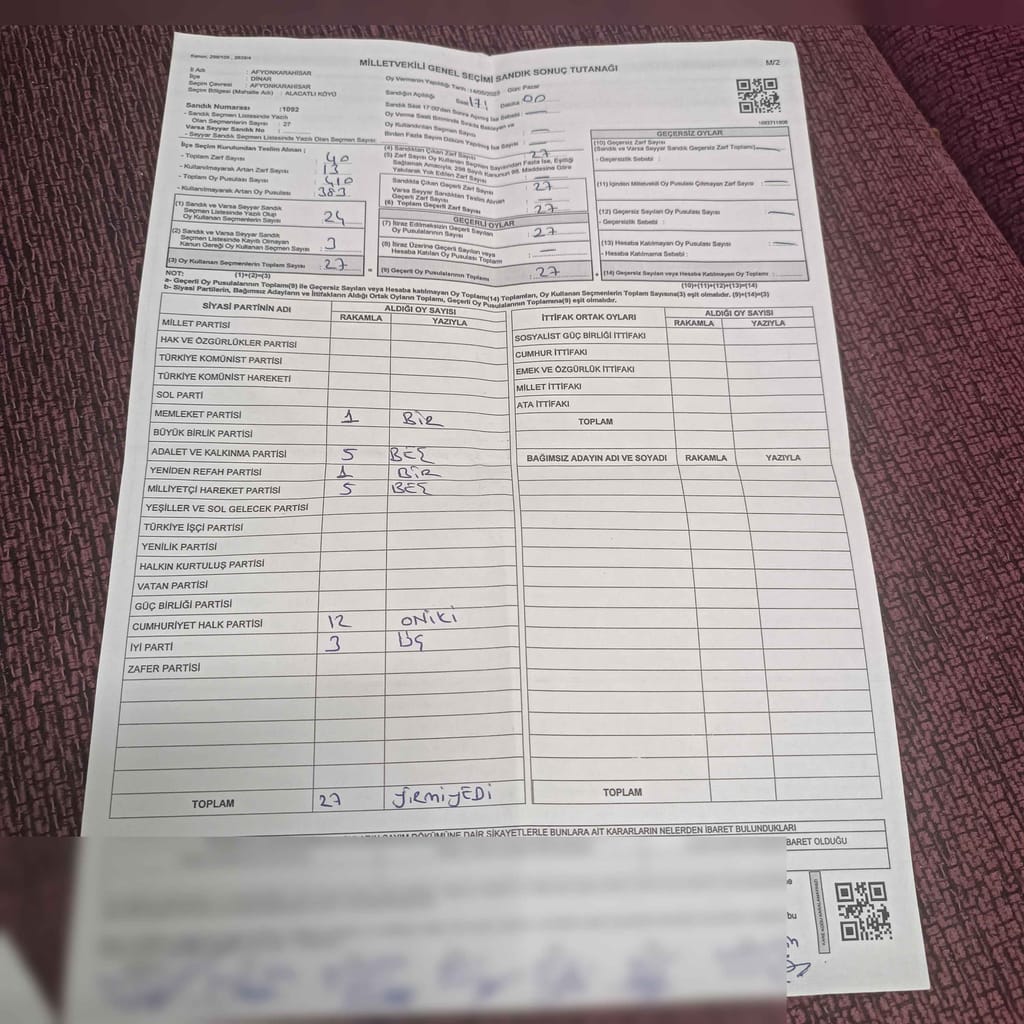 MİLLETVEKİLİ GENEL SEÇİMİ SANDIK SONUÇ TUTANAĞI
M/2
İl Adı : AFYONKARAHİSAR
İlçe : DİNAR
Seçim Çevresi : AFYONKARAHİSAR
Seçim Bölgesi (Mahalle Adı) : ALACATLI KÖYÜ
Oy Vermenin Yapıldığı Tarih : 14/05/2023 Günü: Pazar
Sandığın Açıldığı Saat 17 : Dakika 00
Sandık Numarası :1092
- Sandık Seçmen Listesinde Yazılı
Olan Seçmenlerin Sayısı : 27
Varsa Seyyar Sandık No :
- Seyyar Sandık Seçmen Listesinde Yazılı Olan Seçmen Sayısı
İlçe Seçim Kurulundan Teslim Alınan ;
- Toplam Zarf Sayısı : 40
- Kullanılmayarak Artan Zarf Sayısı : 13
- Toplam Oy Pusulası Sayısı : 410
- Kullanılmayarak Artan Oy Pusulası : 383
(1) Sandık ve Varsa Seyyar Sandık
Seçmen Listesinde Yazılı Olup
Oy Kullanan Seçmenlerin Sayısı : 24
(2) Sandık ve Varsa Seyyar Sandık
Seçmen Listesinde Kayıtlı Olmayan
Kanun Gereği Oy Kullanan Seçmen Sayısı : 3
(3) Oy Kullanan Seçmenlerin Toplam Sayısı : 27
(1)+(2)=(3)
(4) Sandıktan Çıkan Zarf Sayısı : 27
(5) Zarf Sayısı Oy Kullanan Seçmen Sayısından Fazla İse, Eşitliği
Sağlamak Amacıyla, 298 Sayılı Kanunun 98. Maddesine Göre
Yakılarak Yok Edilen Zarf Sayısı : —
Sandıkta Çıkan Geçerli Zarf Sayısı : 27
Varsa Seyyar Sandıktan Teslim Alınan
Geçerli Zarf Sayısı : —
(6) Toplam Geçerli Zarf Sayısı : 27
GEÇERLİ OYLAR
(7) İtiraz Edilmeksizin Geçerli Sayılan
Oy Pusulalarının Sayısı : 27
(8) İtiraz Üzerine Geçerli Sayılan veya
Hesaba Katılan Oy Pusulası Toplamı : —
(9) Geçerli Oy Pusulalarının Toplamı : 27
GEÇERSİZ OYLAR
(10) Geçersiz Zarf Sayısı
(Sandık ve Varsa Seyyar Sandık Geçersiz Zarf Toplamı) : —
- Geçersizlik Sebebi :
(11) İçinden Milletvekili Oy Pusulası Çıkmayan Zarf Sayısı : —
(12) Geçersiz Sayılan Oy Pusulası Sayısı : —
- Geçersizlik Sebebi :
(13) Hesaba Katılmayan Oy Pusulası Sayısı : —
- Hesaba Katılmama Sebebi :
(14) Geçersiz Sayılan veya Hesaba Katılmayan Oy Toplamı :
(10)+(11)+(12)+(13)=(14)
NOT:
a- Geçerli Oy Pusulalarının Toplamı(9) ile Geçersiz Sayılan veya Hesaba katılmayan Oy Toplamı(14) Toplamları, Oy Kullanan Seçmenlerin Toplam Sayısına(3) eşit olmalıdır. (9)+(14)=(3)
b- Siyasi Partilerin, Bağımsız Adayların ve İttifakların Aldığı Ortak Oyların Toplamı, Geçerli Oy Pusulalarının Toplamına(9) eşit olmalıdır.
SİYASİ PARTİNİN ADI ALDIĞI OY SAYISI
RAKAMLA YAZIYLA
MİLLET PARTİSİ
HAK VE ÖZGÜRLÜKLER PARTİSİ
TÜRKİYE KOMÜNİST PARTİSİ
TÜRKİYE KOMÜNİST HAREKETİ
SOL PARTİ
MEMLEKET PARTİSİ 1 BİR
BÜYÜK BİRLİK PARTİSİ
ADALET VE KALKINMA PARTİSİ 5 BEŞ
YENİDEN REFAH PARTİSİ 1 BİR
MİLLİYETÇİ HAREKET PARTİSİ 5 BEŞ
YEŞİLLER VE SOL GELECEK PARTİSİ
TÜRKİYE İŞÇİ PARTİSİ
YENİLİK PARTİSİ
HALKIN KURTULUŞ PARTİSİ
VATAN PARTİSİ
GÜÇ BİRLİĞİ PARTİSİ
CUMHURİYET HALK PARTİSİ 12 ONİKİ
İYİ PARTİ 3 ÜÇ
ZAFER PARTİSİ
TOPLAM 27 YİRMİYEDİ
İTTİFAK ORTAK OYLARI ALDIĞI OY SAYISI
RAKAMLA YAZIYLA
SOSYALİST GÜÇ BİRLİĞİ İTTİFAKI
CUMHUR İTTİFAKI
EMEK VE ÖZGÜRLÜK İTTİFAKI
MİLLET İTTİFAKI
ATA İTTİFAKI
TOPLAM
BAĞIMSIZ ADAYIN ADI VE SOYADI RAKAMLA YAZIYLA
TOPLAM
SAYIM DÖKÜMÜNE DAİR ŞİKAYETLERLE BUNLARA AİT KARARLARIN NELERDEN İBARET BULUNDUKLARI
BARET OLDUĞU
bu